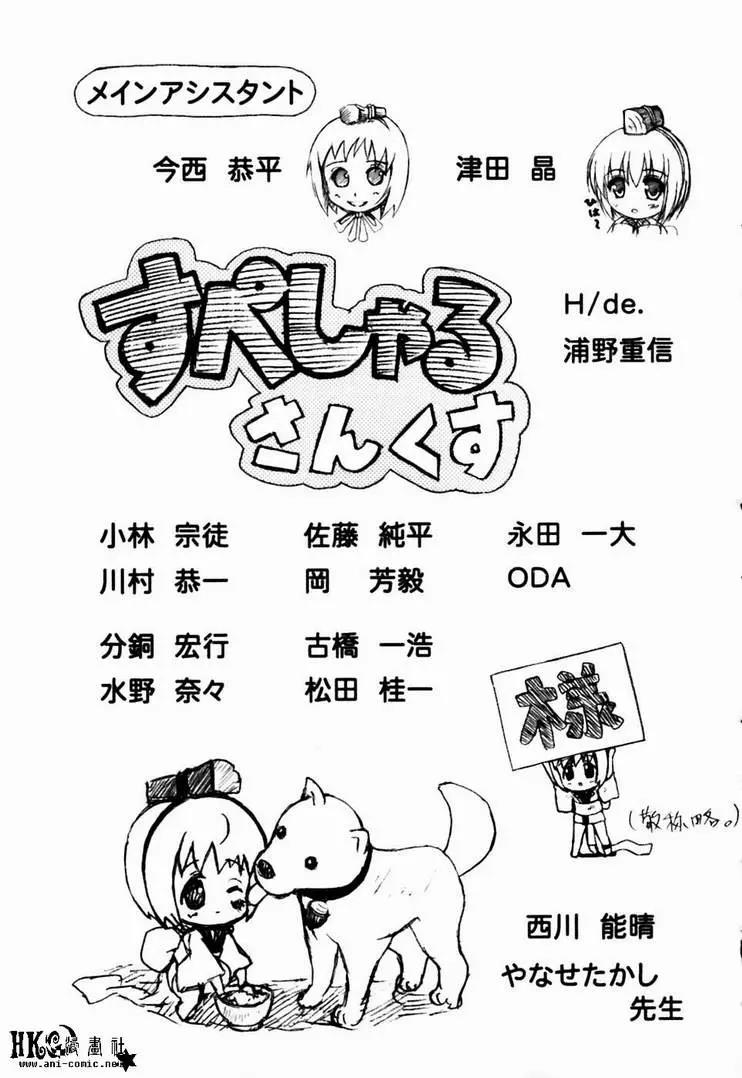 メインアシスタント
今西 恭平 津田 晶
ひは〜
すぺしゃる
さんくす
H/de.
浦野重信
小林 宗徒 佐藤 純平 永田 一大
川村 恭一 岡 芳毅 ODA
分銅 宏行 古橋 一浩
水野 奈々 松田 桂一
様
(敬称略。)
西川 能晴
やなせたかし
先生
HKG漫畫社
www.ani-comic.net